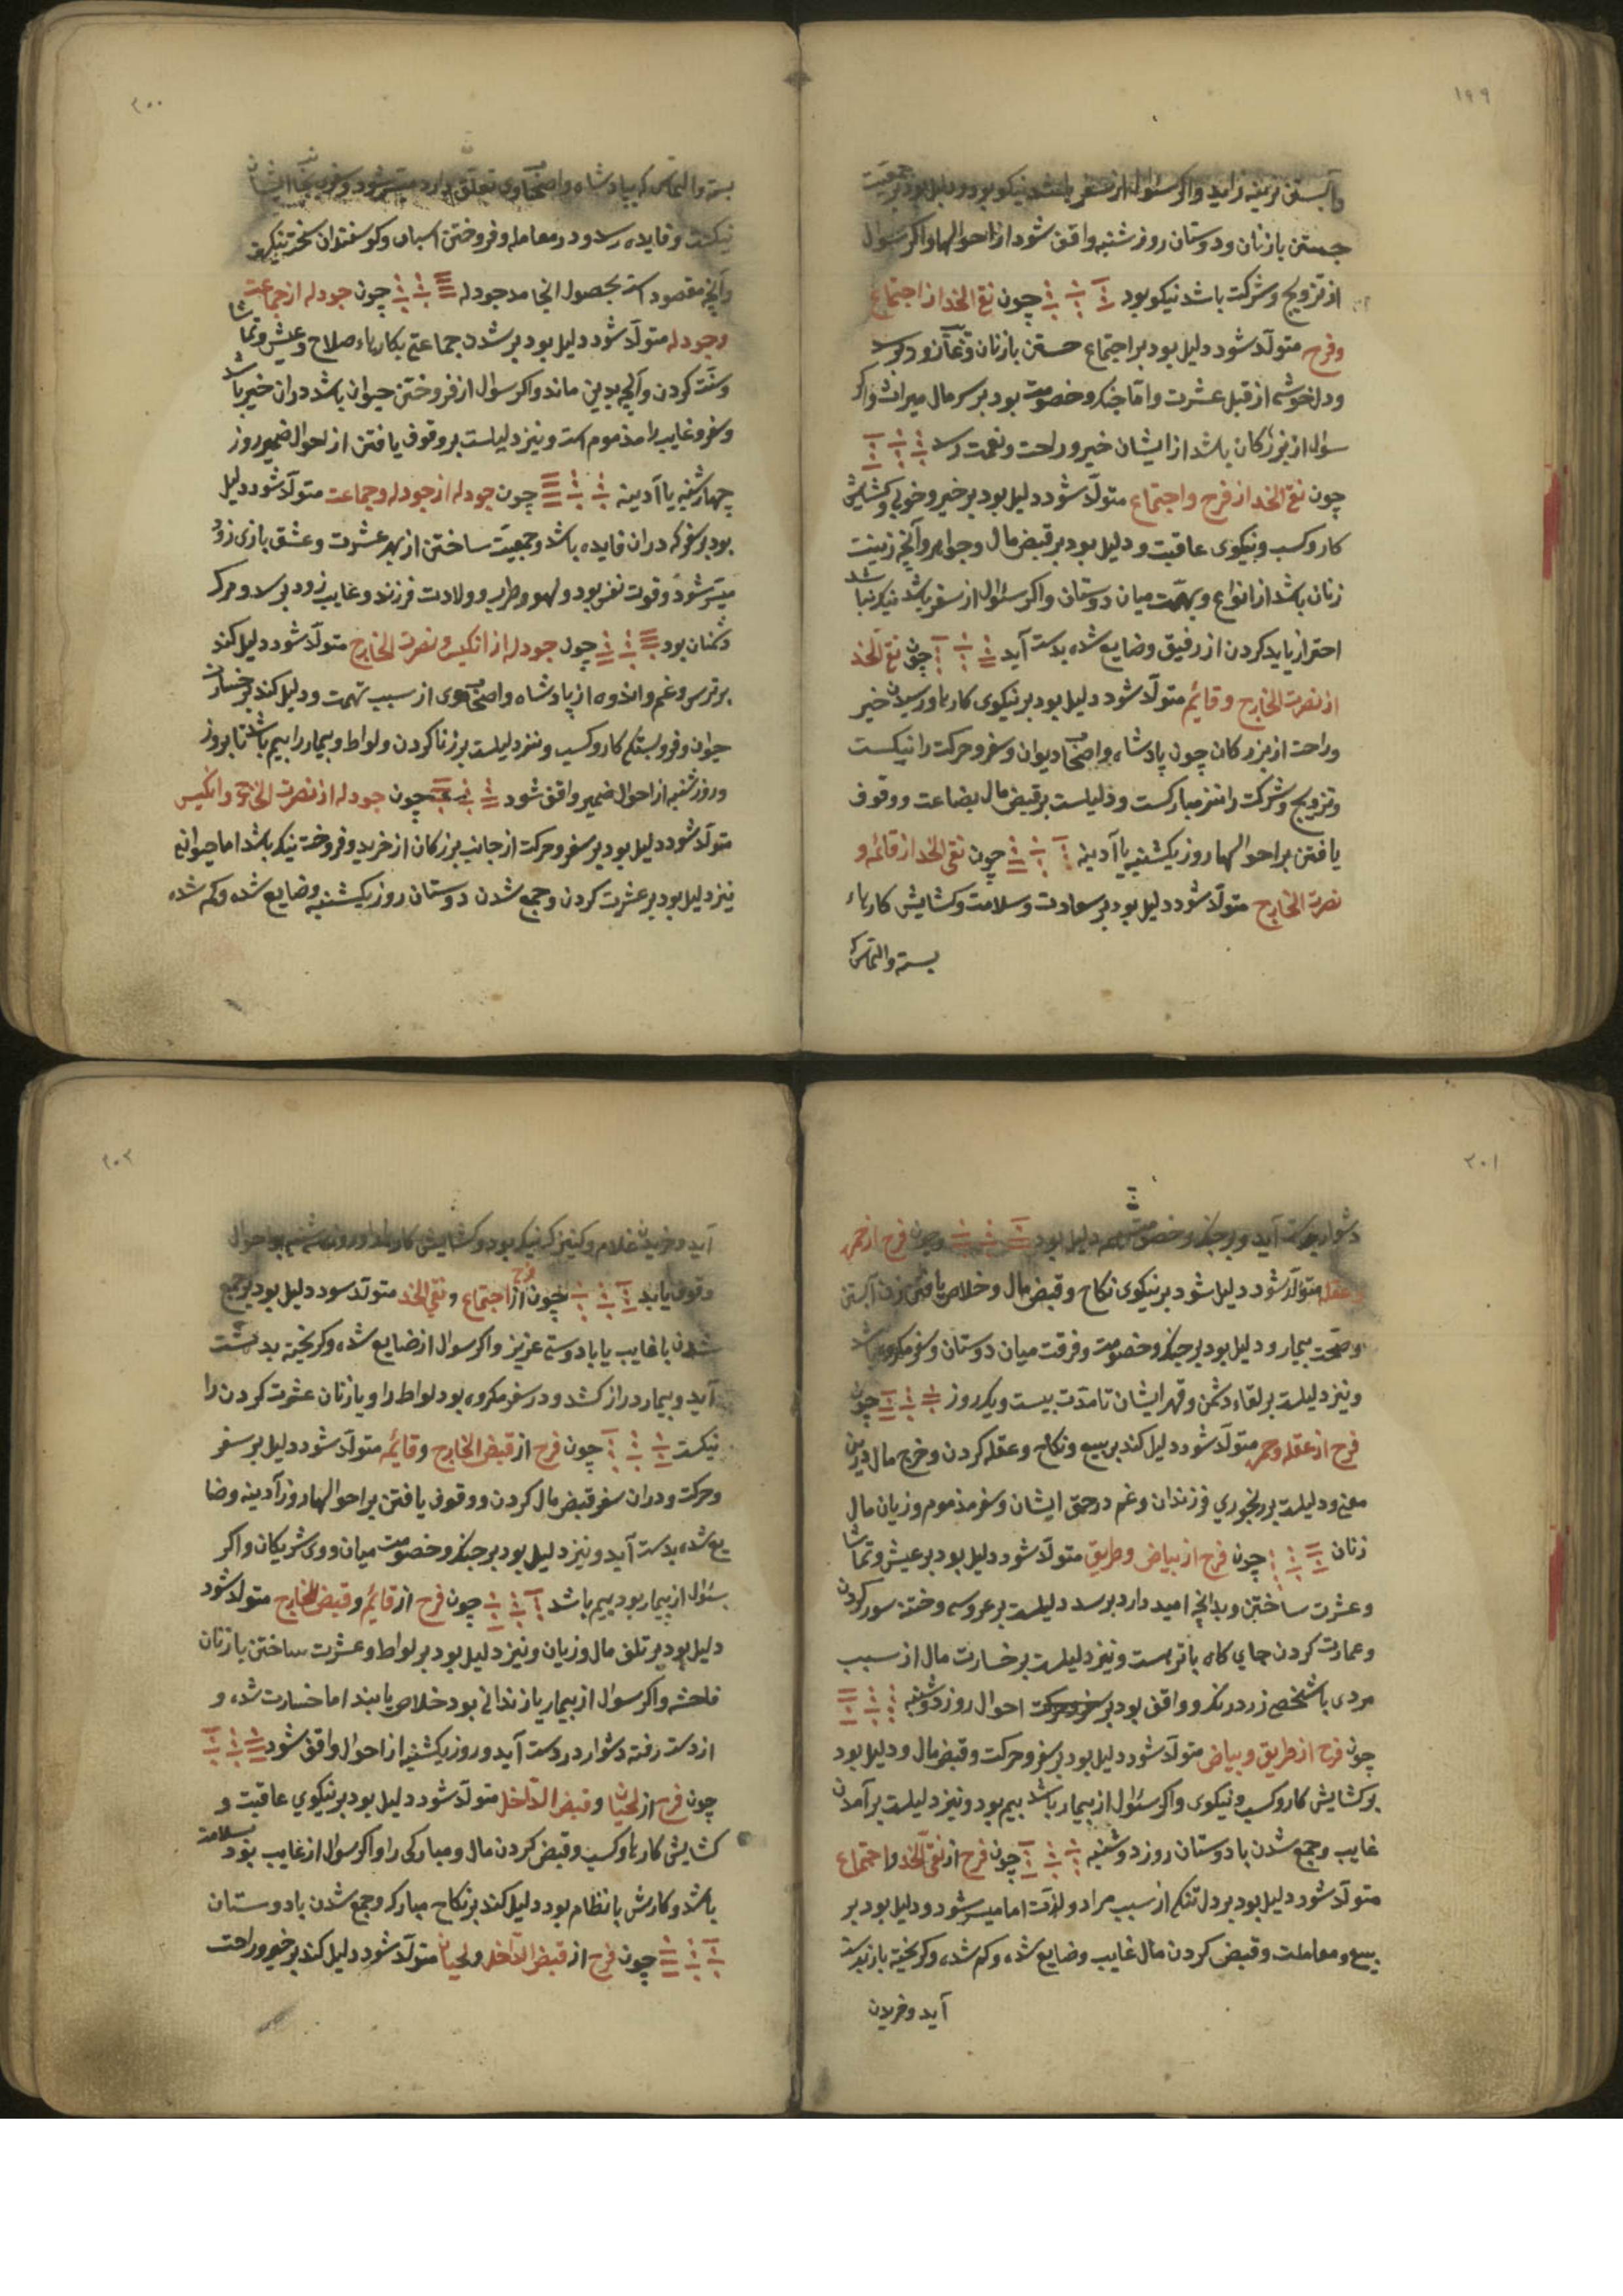 ۱۹۹
وآبستن نرینه زاید واکر سئوال از سفر باشد نیکو بود ودلیل بود بر جمعیت
جستن با زنان ودوستان روز شنبه واقف شود از احوالها واکر سئوال
از تزویج وشرکت باشد نیکو بود چون نقی الخد از اجتماع
وفرح متولّد شود دلیل بود بر اجتماع جستن با زنان
ودلخوشی از قبل عشرت واما جنک وخصومت بود بر سر مال میراث واکر
سؤل از بزرکان باشد از ایشان خیر وراحت ونعمت رسد
چون نقی الخد از فرح واجتماع متولّد شود دلیل بود بر خیر وخوبی وکشایش
کار وکسب ونیکوی عاقبت ودلیل بود بر قبض مال وجواهر وآنچه زینت
زنان باشد از انواع وتهمت میان دوستان واکر سئوال از سفر باشد نیک نباشد
احتراز باید کردن از رفیق وضایع شده بدست آید چون نقی الخد
از نصرت الخارج وقائم متولّد شود دلیل بود بر نیکوی کارها ورسیدن خیر
وراحت از بزرکان چون پادشاه واصحاب دیوان وسفر وحرکت را نیکست
وتزویج وشرکت را نیز مبارکست ودلیلست بر قبض مال بضاعت ووقوف
یافتن بر احوالها روز یکشنبه یا آدینه چون نقی الخد از قائم و
نصرت الخارج متولّد شود دلیل بود بر سعادت وسلامت وکشایش کارهاء
بسته والتماس که
۲۰۰
بسته والتماس که بپادشاه واصحاب وی تعلق دارد میسر شود وسفر
نیکست وفایده رسد ودر معامله وفروختن اسبان وکوسفندان سخت نیکو
وآنچه مقصود است بحصول انجامد جودله چون جودله از جماعت
وجودله متولّد شود دلیل بود بر شدن جماعتی بکارهاء صلاح وعیش وتماشا
وسنّت کردن وآنچه بدین ماند واکر سؤال از فروختن حیوان باشد در آن خیر باشد
وسفر وغایب را مذموم است ونیز دلیلست بر وقوف یافتن از احوال ضمیر روز
چهارشنبه یا آدینه چون جودله از جودله وجماعت متولّد شود دلیل
بود بر سفر که در آن فایده باشد وجمعیت ساختن از بهر عشرت وعشق بازی زود
میسّر شود وقوت نفس بود ولهو وطرب وولادت فرزند وغایب زود برسد ومرک
دشمنان بود چون جودله از انکیس ونصرت الخارج متولّد شود دلیل کند
بر ترس وغم واندوه از پادشاه واصحاب وی از سبب تهمت ودلیل کند بر خسارت
حیوان وفروبستکی کار وکسب ونیز دلیلست بر زنا کردن ولواط وبیمار را بیم باشد تا بروز
وروز شنبه از احوال ضمیر واقف شود چون جودله از نصرت الخارج وانکیس
متولّد شود دلیل بود بر سفر وحرکت از جانب بزرکان از خرید وفروخت نیک باشد اما حیوانی
نیز دلیل بود بر عشرت کردن وجمع شدن دوستان روز یکشنبه وضایع شده وکم شده
۲۰۱
دشوار بدست آید وبر جنک وخصومت هم دلیل بود وچون فرح از حمره
وعقله متولّد شود دلیل شود بر نیکوی نکاح وقبض مال وخلاص یافتن زن آبستن
وصحّت بیمار ودلیل بود بر جنک وخصومت وفرقت میان دوستان وسفر مکروه باشد
ونیز دلیلست بر لقاء دشمن وقهر ایشان تا مدّت بیست ویک روز چون
فرح از عقله وحمره متولّد شود دلیل کند بر بیع ونکاح وعقله کردن وخرج مال درین
معنی ودلیلست بر رنجوری فرزندان وغم در حق ایشان وسفر مذموم وزیان مال
زنان چون فرح از بیاض وطریق متولّد شود دلیل بود بر عیش وتماشا
وعشرت ساختن وبدانچه امید دارد برسد دلیلست بر عروسی وختنه سور کردن
وعمارت کردن جای کاه با ترتیب ونیز دلیلست بر خسارت مال از سبب
مردی یا شخصی زرد رنک وواقف بود بر احوال روز دوشنبه
چون فرح از طریق وبیاض متولّد شود دلیل بود بر سفر وحرکت وقبض مال ودلیل بود
بر کشایش کار وکسب ونیکوی واکر سئوال از بیمار باشد بیم بود ونیز دلیلست بر آمدن
غایب وجمع شدن با دوستان روز دوشنبه چون فرح از نقی الخد واجتماع
متولّد شود دلیل بود بر دل تنکی از سبب مراد ولذّت اما میسر شود ودلیل بود بر
بیع ومعاملت وقبض کردن مال غایب وضایع شده وکم شده وکریخته باز بدست
آید وخریدن
۲۰۲
آید وخریدن غلام وکنیزک نیکو بود وکشایش کارها وروز شنبه بر احوال
وقوف یابد چون فرح از اجتماع ونقی الخد متولّد شود دلیل بود بر جمع
شدن با غایب یا با دوستی عزیز واکر سوال از ضایع شده وکریخته بدست
آید وبیمار دراز کشد ودر سفر مکروه بود لواط را وبا زنان عشرت کردن را
نیکست چون فرح از قبض الخارج وقائم متولّد شود دلیل بر سفر
وحرکت ودر آن سفر قبض مال کردن ووقوف یافتن بر احوالها روز آدینه وضا
یع شده بدست آید ونیز دلیل بود بر جنک وخصومت میان ووی شریکان واکر
سئوال از بیمار بود بیم باشد چون فرح از قائم وقبض الخارج متولّد شود
دلیل بود بر تلف مال وزیان ونیز دلیل بود بر لواط وعشرت ساختن با زنان
فاحشه واکر سوال از بیمار یا زندانی بود خلاص یابند اما خسارت شده و
از دست رفته دشوار در دست آید وروز یکشنبه از احوال واقف شود
چون فرح از لحیان وقبض الدّاخل متولّد شود دلیل بود بر نیکوی عاقبت و
کشایش کارها وکسب وقبض کردن مال ومبارکی را واکر سوال از غایب بود سلامت
باشد وکارش بانظام بود دلیل کند بر نکاح مبارک وجمع شدن با دوستان
چون فرح از قبض الدّاخل ولحیان متولّد شود دلیل کند بر خیر وراحت